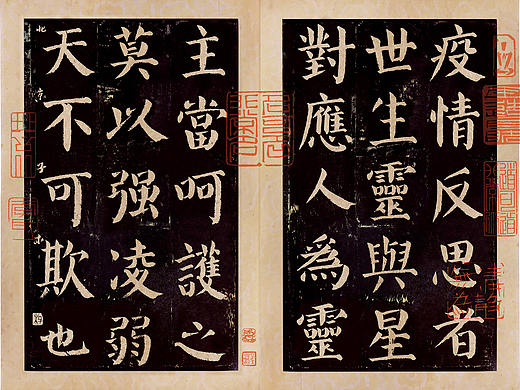 疫情反思者
世生靈與星
對應人為靈
主當呵護之
莫以强凌弱
天不可欺也